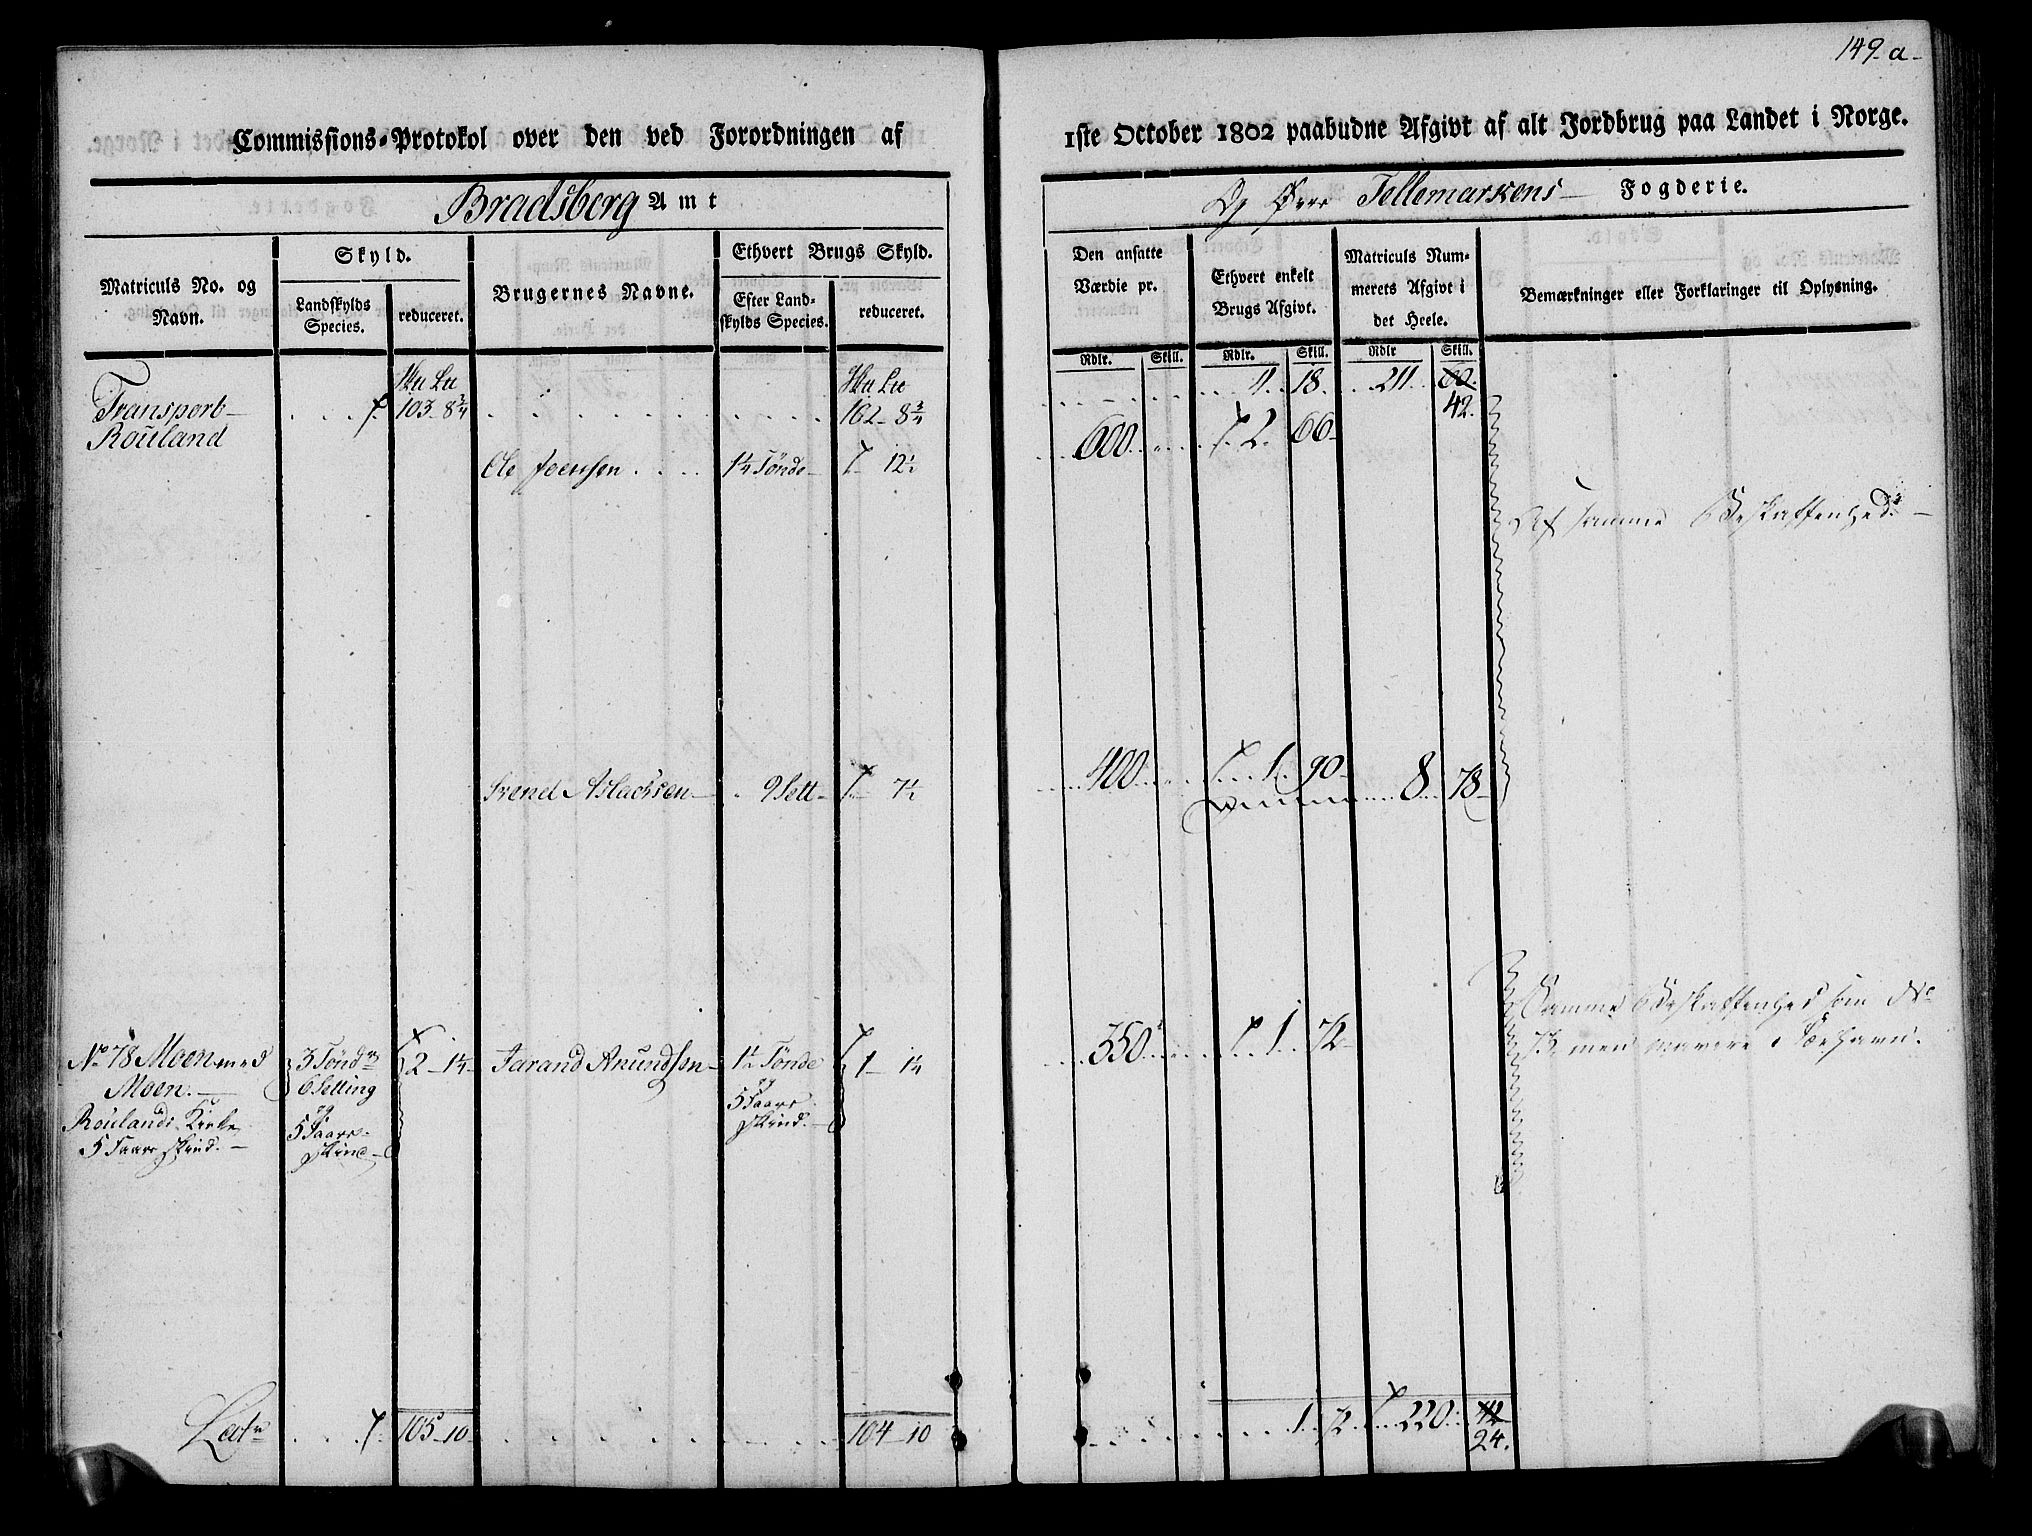 149-a-
Commissions-Protokol over den ved Forordningen af 1ste October 1802 paabudne Afgivt af alt Jordbrug paa Landet i Norge.
Bradsberg Amt
Og Øvre Tellemarkens Fogderie.
Matriculs No. og Navn.
Skyld.
Landskylds Species.
reduceret.
Brugernes Navne.
Ethvert Brugs Skyld.
Efter Landskylds Species.
reduceret.
Den ansatte Værdie pr.
Ethvert enkelt Brugs Afgivt.
Matriculs Nummerets Afgivt i det Heele.
Bemærkninger eller Forklaringer til Oplysning.
Rdlr. Skill. Rdlr. Skill. Rdlr Skill.
Transport 103 8¾ 102 8¾ 4 18 211
42
Rouland
600 2 66
Ole 1¼ Tønde 12½
Af samme Beskaffenhed
Svend Aslachsen 9 Sett 7½ 400 1 90 8 78
Samme Beskaffenhed som No
No 78 Moen med 3 Tønder 2 1¼ Tarand Anundsen 1½ Tønde 1 1¼ 350 1 72
Moen 6 Setting og
Roulands Kirke 5 Faare
5 Faare skind skind
og
5 Faare
skind
Lat 105 10 104 10 1 72 220 42
24